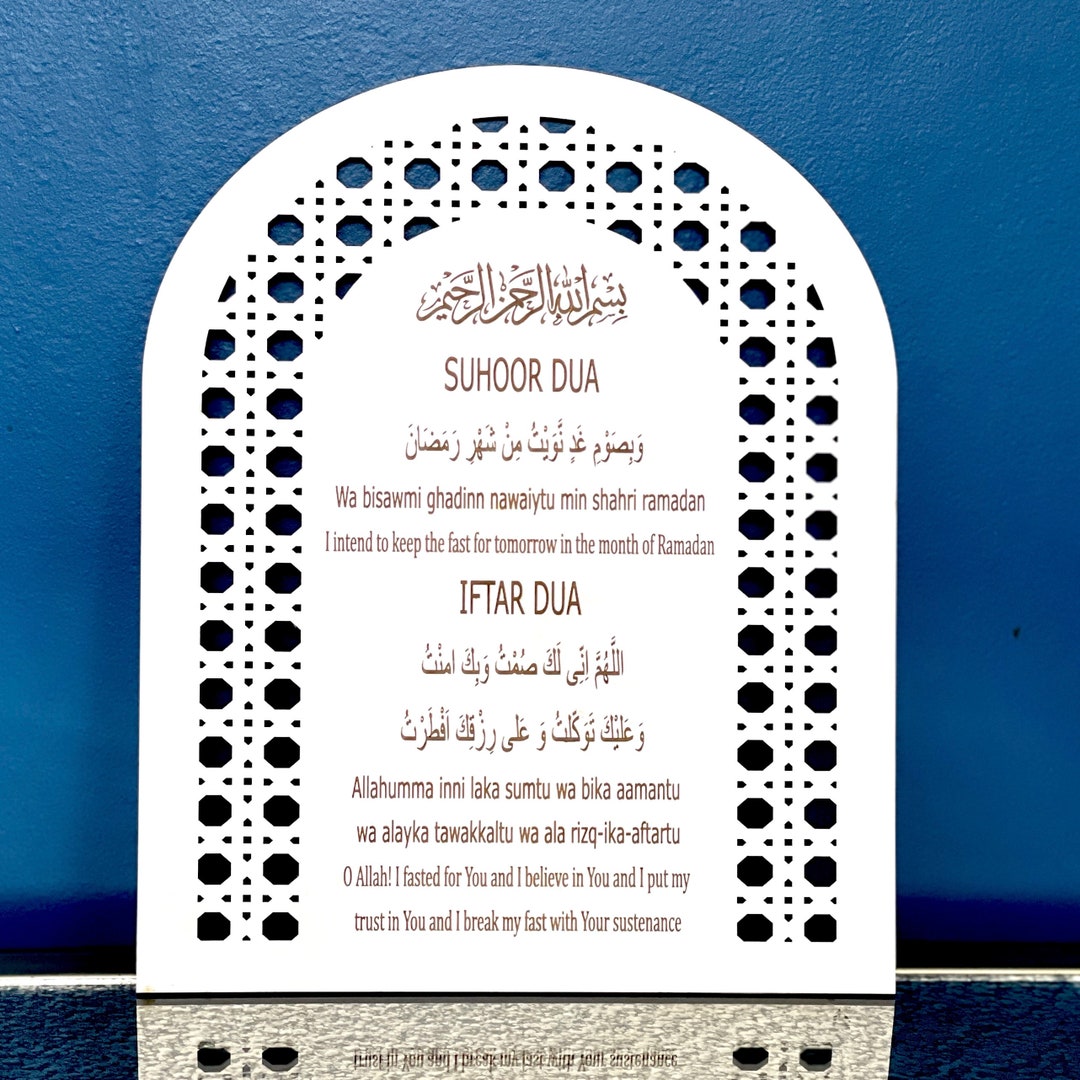 بِسْمِ اللهِ الرَّحْمٰنِ الرَّحِيْمِ
SUHOOR DUA
وَبِصَوْمِ غَدٍ نَّوَيْتُ مِنْ شَهْرِ رَمَضَانَ
Wa bisawmi ghadinn nawaiytu min shahri ramadan
I intend to keep the fast for tomorrow in the month of Ramadan
IFTAR DUA
اللَّهُمَّ اِنِّى لَكَ صُمْتُ وَبِكَ امنْتُ
وَعَلَيْكَ تَوَكَّلتُ وَ عَلى رِزْقِكَ اَفْطَرْتُ
Allahumma inni laka sumtu wa bika aamantu
wa alayka tawakkaltu wa ala rizq-ika-aftartu
O Allah! I fasted for You and I believe in You and I put my
trust in You and I break my fast with Your sustenance